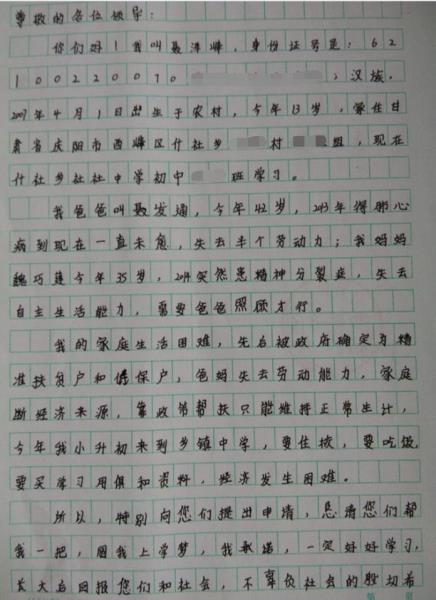 尊敬的各位领导：
你们好！我叫聂泽峰，身份证号是：62
100220070，汉族，
2007年4月1日出生于农村，今年13岁，家住甘
肃省庆阳市西峰区什社乡村组，现在
什社乡社社中学初中班学习。
我爸爸叫聂发通，今年42岁，2013年得那心
病到现在一直未愈，失去半个劳动力；我妈妈
魏巧莲今年35岁，2014突然患精神分裂症，失去
自主生活能力，需要爸爸照顾才行。
我的家庭生活困难，先后被政府确定为精
准扶贫户和低保户，爸妈失去劳动能力，家庭
断经济来源，靠政策帮扶只能维持正常生计，
今年我小升初来到乡镇中学，要住校，要吃饭，
要买学习用俱和资料，经济发生困难。
所以，特别向您们提出申请，恳请您们帮
我一把，圆我上学梦，我承诺，一定好好学习，
长大后回报您们和社会，不辜负社会的殷切希